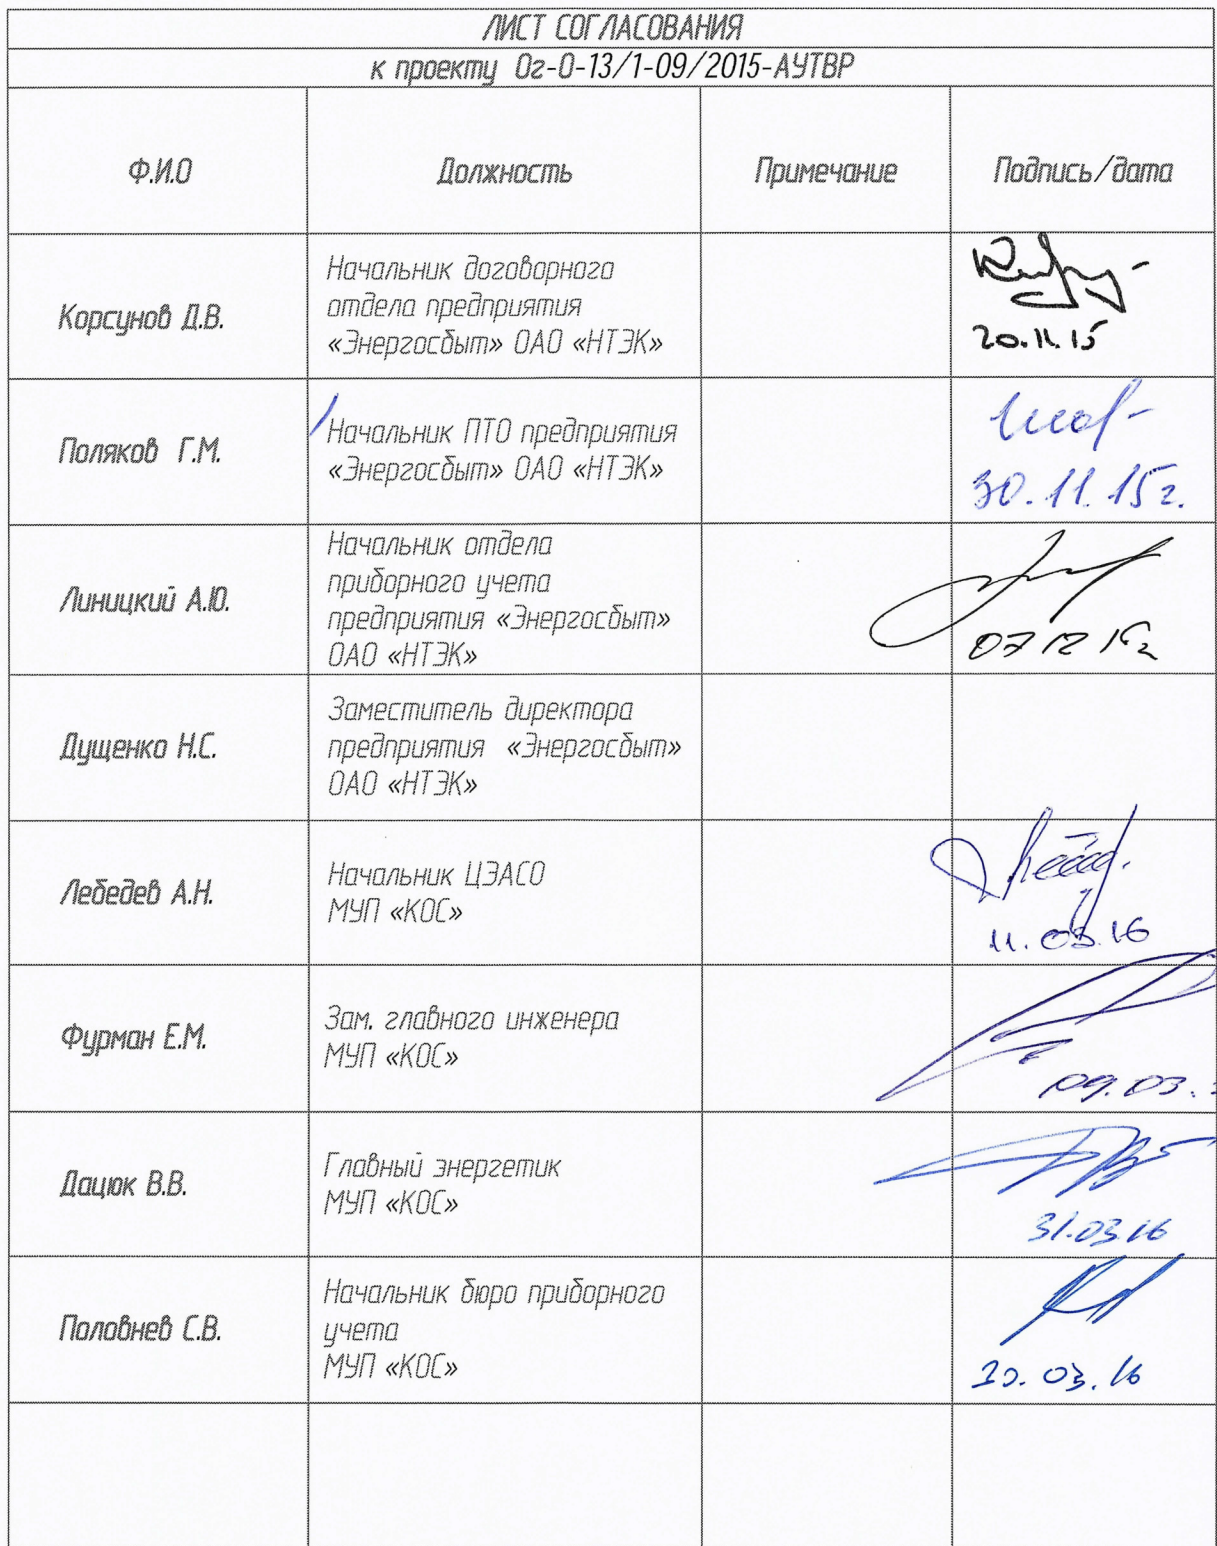 ЛИСТ СОГЛАСОВАНИЯ
к проекту Ог-О-13/1-09/2015-АУТВР
Ф.И.О
Должность
Примечание
Подпись/дата
Корсунов Д.В.
Начальник договорного
отдела предприятия
«Энергосбыт» ОАО «НТЭК»
20.11.15
Поляков Г.М.
Начальник ПТО предприятия
«Энергосбыт» ОАО «НТЭК»
30.11.15г.
Линицкий А.Ю.
Начальник отдела
приборного учета
предприятия «Энергосбыт»
ОАО «НТЭК»
07 12 15г
Дущенко Н.С.
Заместитель директора
предприятия «Энергосбыт»
ОАО «НТЭК»
Лебедев А.Н.
Начальник ЦЭАСО
МУП «КОС»
11.03.16
Фурман Е.М.
Зам. главного инженера
МУП «КОС»
09.03.
Дацюк В.В.
Главный энергетик
МУП «КОС»
31.03.16
Половнев С.В.
Начальник бюро приборного
учета
МУП «КОС»